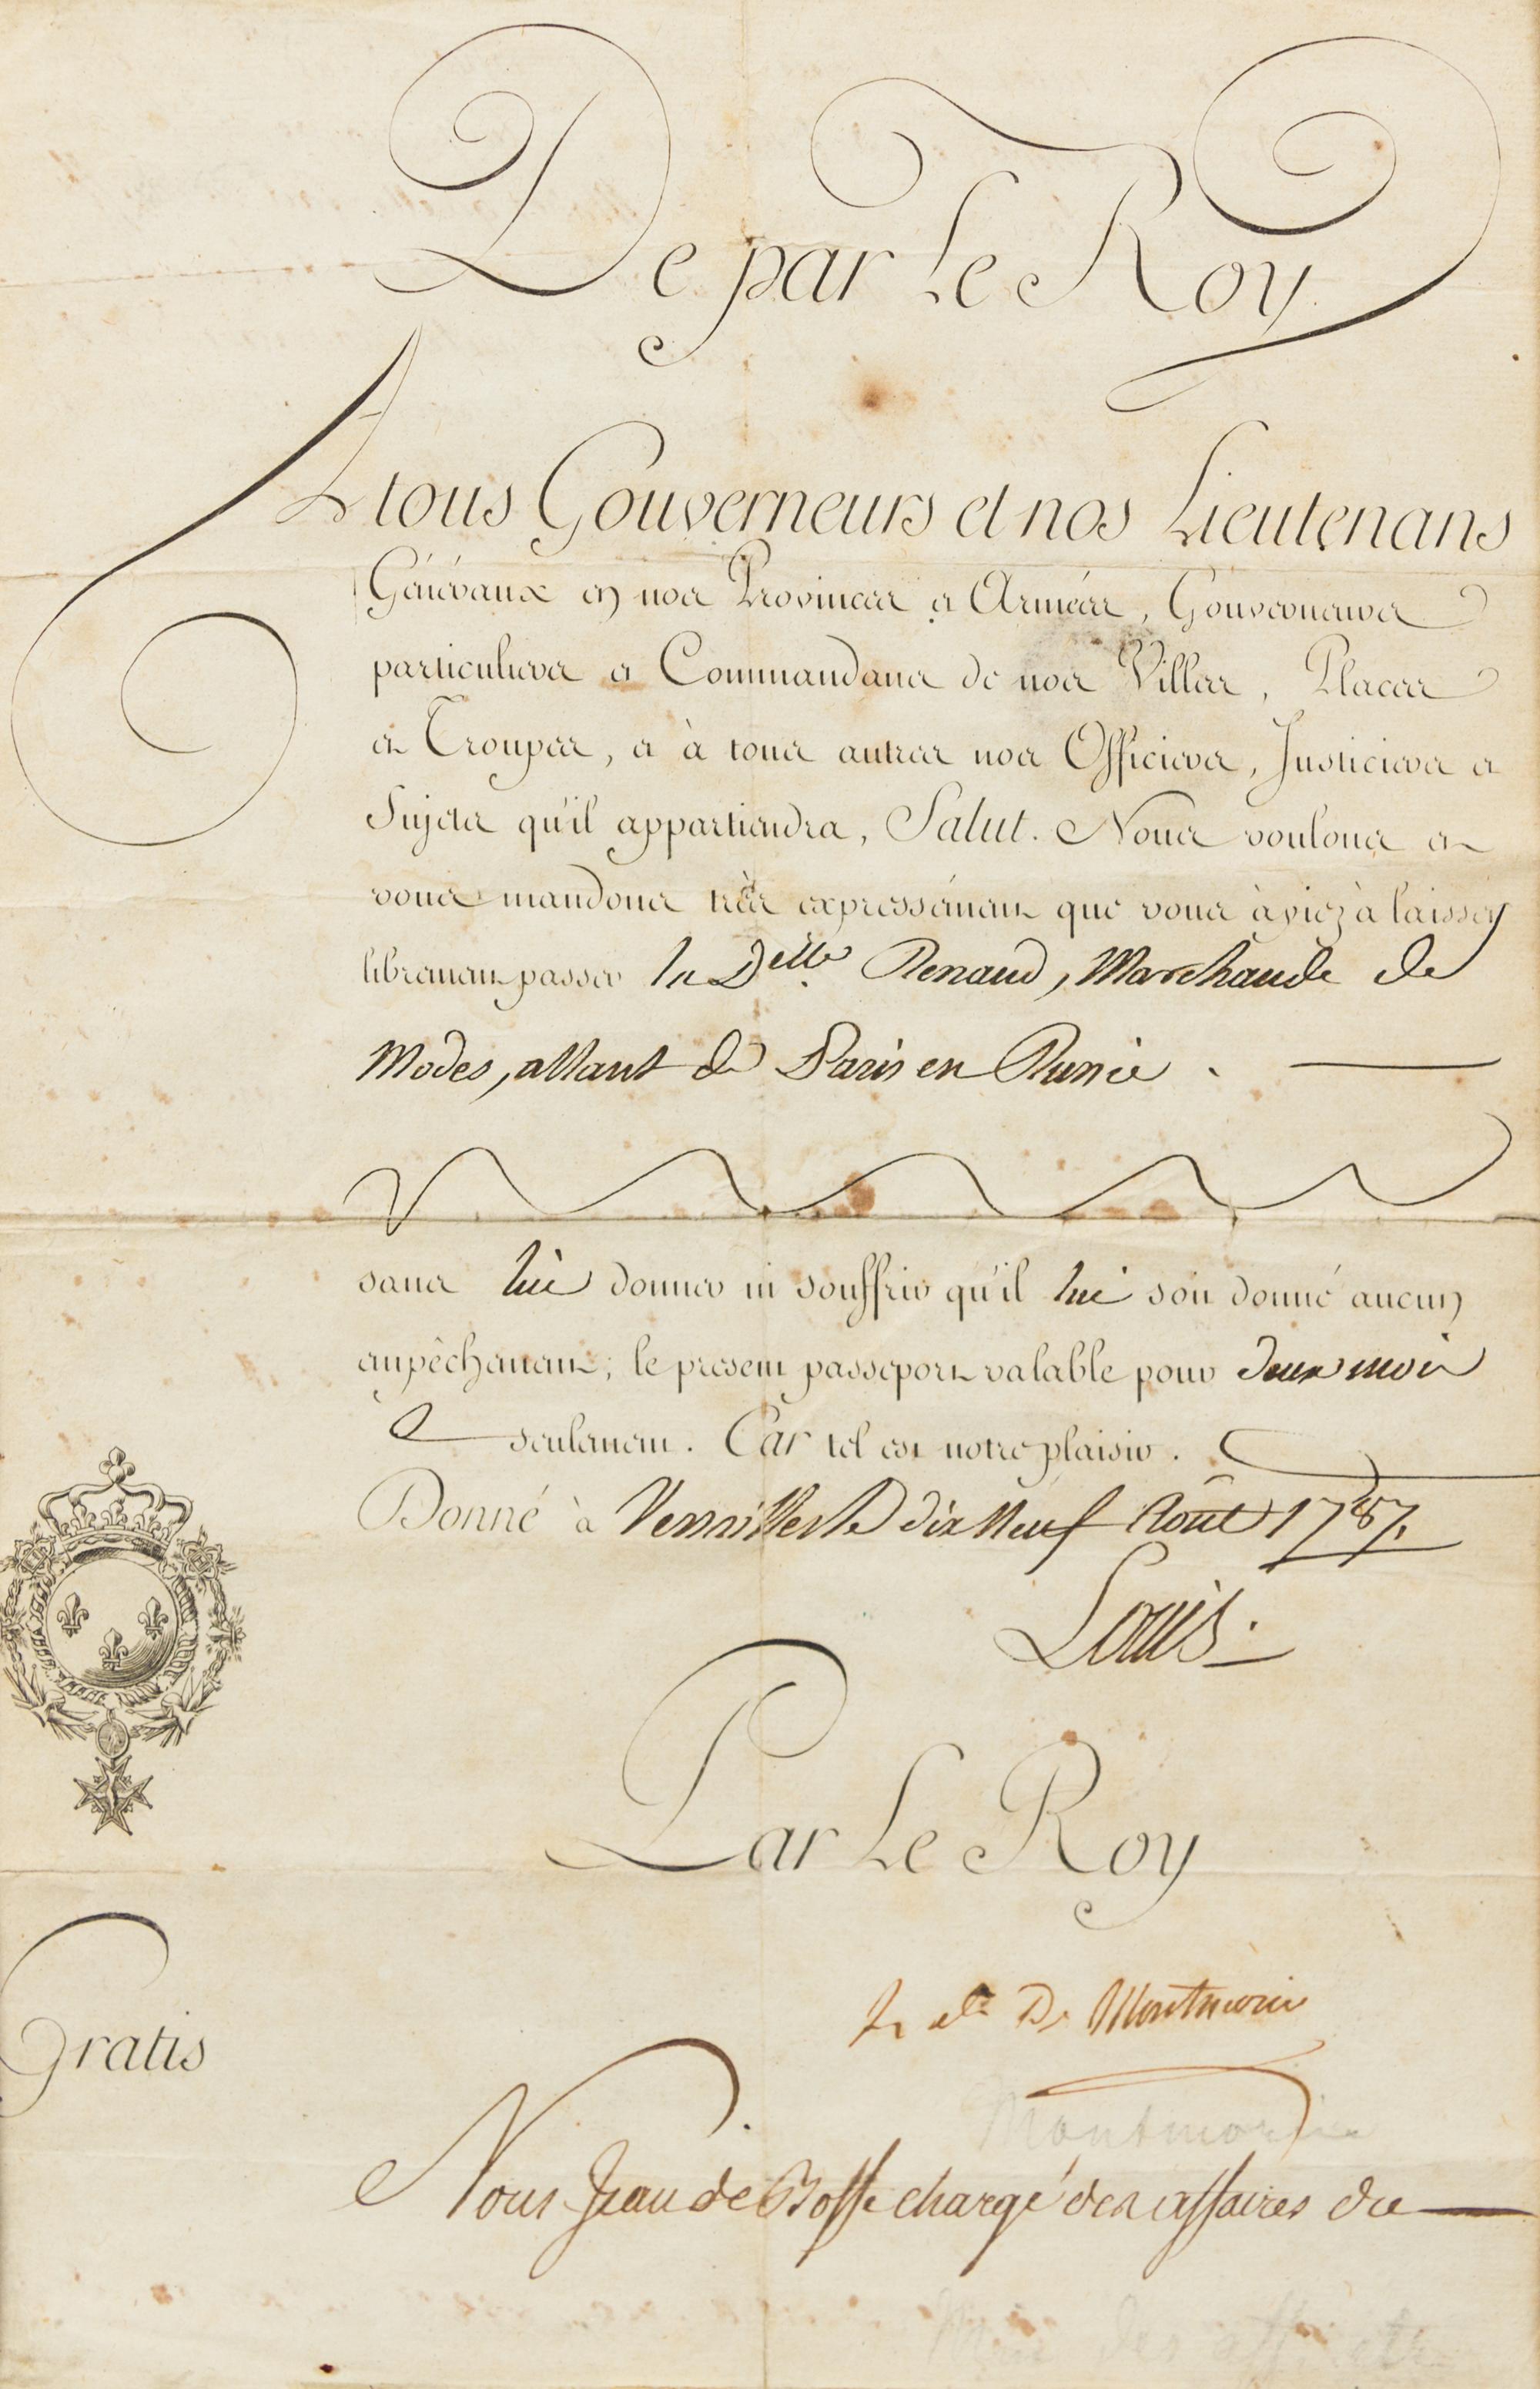 De par Le Roy
A tous Gouverneurs et nos Lieutenans
Généraux en nos Provinces et Armées, Gouverneurs
particuliers et Commandans de nos Villes, Places
et Troupes, et à tous autres nos Officiers, Justiciers et
Sujets qu'il appartiendra, Salut. Nous voulons et
vous mandons très expressément que vous àyiez à laisser
librement passer la Delle. Renaud, Marchande de
Modes, allant de Paris en Russie.
sans lui donner ni souffrir qu'il lui soit donné aucun
empêchement; le present passeport valable pour deux mois
seulement. Car tel est notre plaisir.
Donné à Versailles le dix Neuf Août 1787.
Louis.
Par Le Roy
De Montmorin
Gratis
Montmorin
Nous Jean de chargé des affaires de